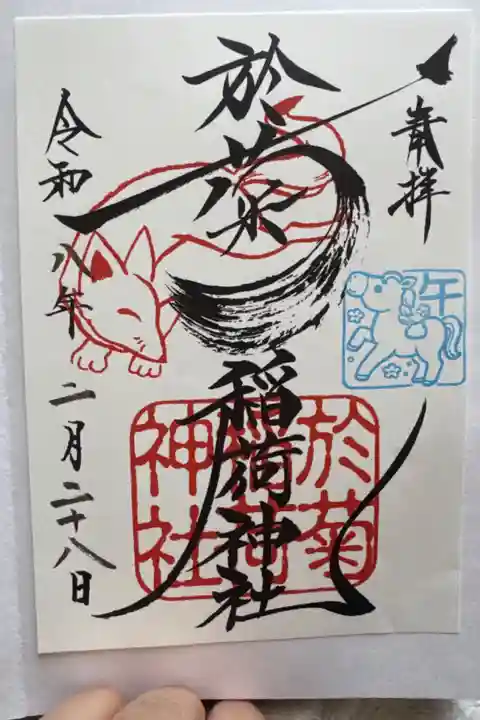 奉拝
午
於菊稲荷神社
於菊
稲荷
神社
令和八年二月二十八日